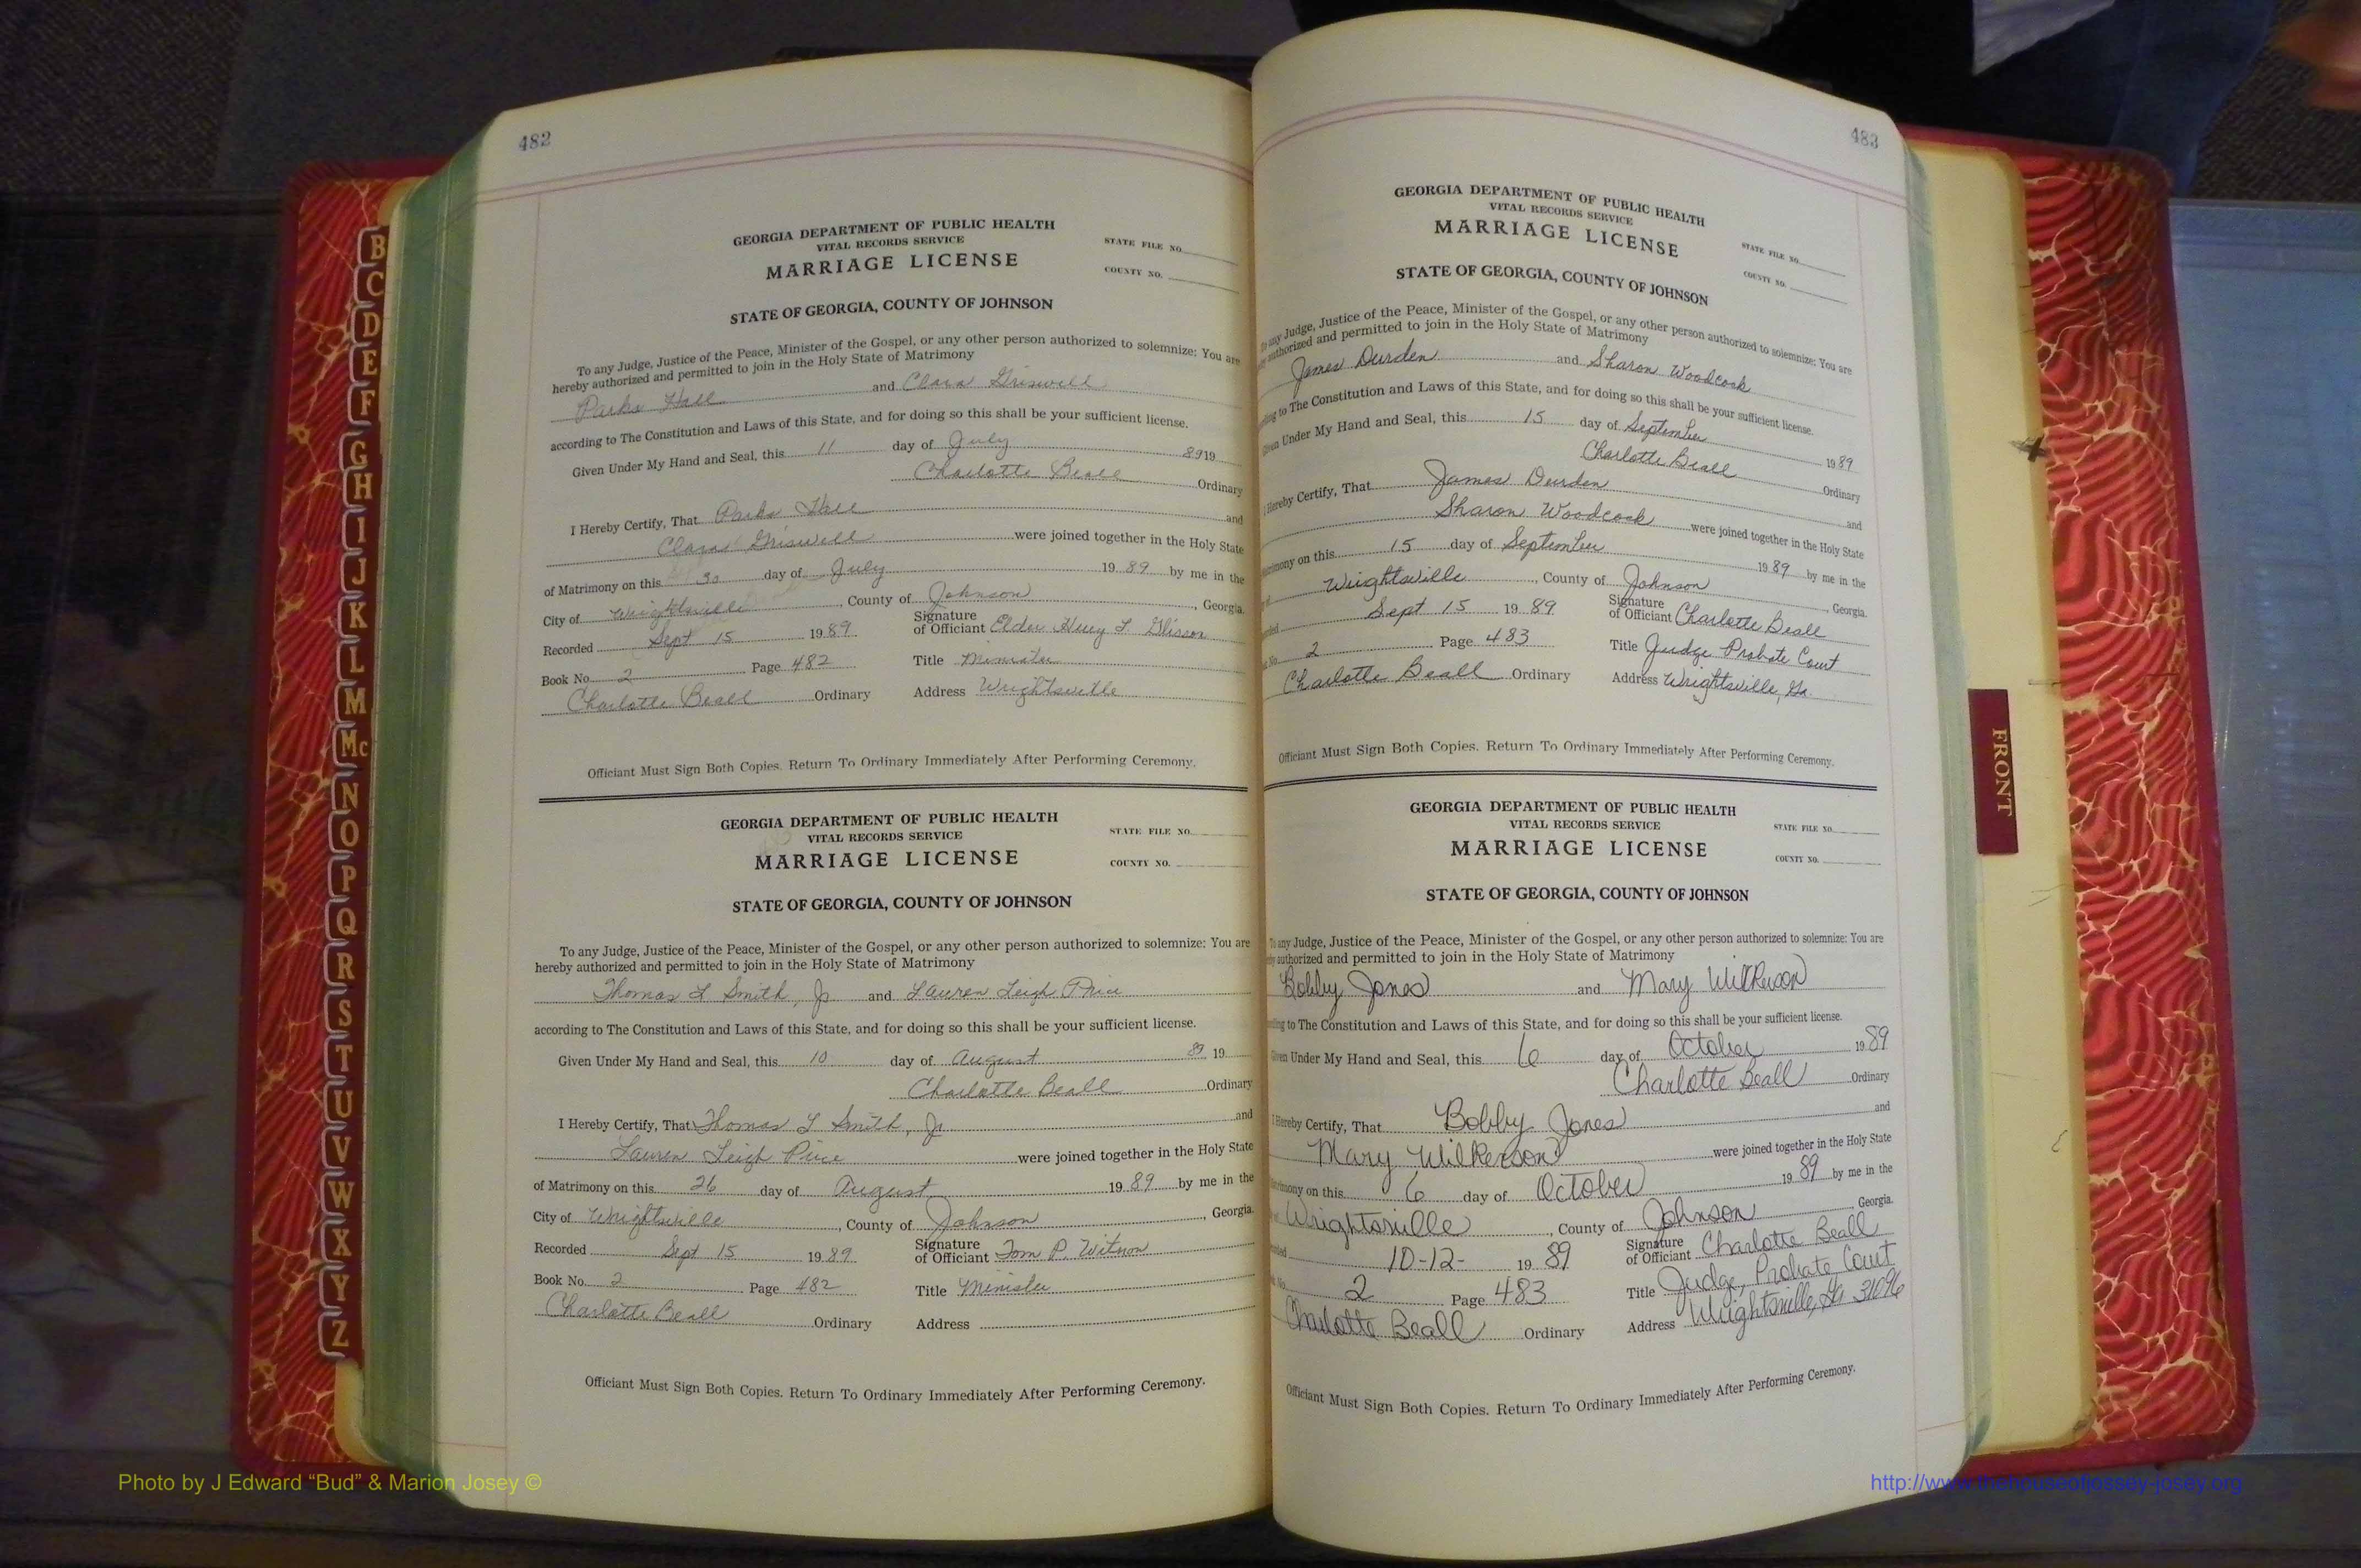 482
GEORGIA DEPARTMENT OF PUBLIC HEALTH
VITAL RECORDS SERVICE
MARRIAGE LICENSE
STATE FILE NO.
COUNTY NO.
STATE OF GEORGIA, COUNTY OF JOHNSON
To any Judge, Justice of the Peace, Minister of the Gospel, or any other person authorized to solemnize: You are
hereby authorized and permitted to join in the Holy State of Matrimony
Parks Hall and Clara Griswell
according to The Constitution and Laws of this State, and for doing so this shall be your sufficient license.
Given Under My Hand and Seal, this 11 day of July 8919
Charlotte Beall Ordinary
I Hereby Certify, That Parks Hall and
Clara Griswell were joined together in the Holy State
of Matrimony on this 30 day of July 19 89 by me in the
City of Wrightsville, County of Johnson, Georgia.
Recorded Sept 15 1989 Signature of Officiant Elder L Glisson
Book No. 2 Page 482 Title Minister
Charlotte Beall Ordinary Address Wrightsville
Officiant Must Sign Both Copies. Return To Ordinary Immediately After Performing Ceremony.
GEORGIA DEPARTMENT OF PUBLIC HEALTH
VITAL RECORDS SERVICE
MARRIAGE LICENSE
STATE FILE NO.
COUNTY NO.
STATE OF GEORGIA, COUNTY OF JOHNSON
To any Judge, Justice of the Peace, Minister of the Gospel, or any other person authorized to solemnize: You are
hereby authorized and permitted to join in the Holy State of Matrimony
Thomas L Smith, Jr and Lauren Leigh Price
according to The Constitution and Laws of this State, and for doing so this shall be your sufficient license.
Given Under My Hand and Seal, this 10 day of August 89 19
Charlotte Beall Ordinary
I Hereby Certify, That Thomas L Smith, Jr and
Lauren Leigh Price were joined together in the Holy State
of Matrimony on this 26 day of August 19 89 by me in the
City of Wrightsville, County of Johnson, Georgia.
Recorded Sept 15 1989 Signature of Officiant Tom P.
Book No. 2 Page 482 Title Minister
Charlotte Beall Ordinary Address
Officiant Must Sign Both Copies. Return To Ordinary Immediately After Performing Ceremony.
483
GEORGIA DEPARTMENT OF PUBLIC HEALTH
VITAL RECORDS SERVICE
MARRIAGE LICENSE
STATE FILE NO.
COUNTY NO.
STATE OF GEORGIA, COUNTY OF JOHNSON
To any Judge, Justice of the Peace, Minister of the Gospel, or any other person authorized to solemnize: You are
authorized and permitted to join in the Holy State of Matrimony
James Durden and Sharon Woodcock
to The Constitution and Laws of this State, and for doing so this shall be your sufficient license.
Given Under My Hand and Seal, this 15 day of September 1989
Charlotte Beall Ordinary
I Hereby Certify, That James Durden and
Sharon Woodcock were joined together in the Holy State
on this 15 day of September 1989 by me in the
Wrightsville, County of Johnson, Georgia.
Sept 15 19 89 Signature of Officiant Charlotte Beall
No. 2 Page 483 Title Judge Probate Court
Charlotte Beall Ordinary Address Wrightsville, Ga.
Officiant Must Sign Both Copies. Return To Ordinary Immediately After Performing Ceremony.
GEORGIA DEPARTMENT OF PUBLIC HEALTH
VITAL RECORDS SERVICE
MARRIAGE LICENSE
STATE FILE NO.
COUNTY NO.
STATE OF GEORGIA, COUNTY OF JOHNSON
To any Judge, Justice of the Peace, Minister of the Gospel, or any other person authorized to solemnize: You are
authorized and permitted to join in the Holy State of Matrimony
Bobby Jones and Mary Wilkerson
to The Constitution and Laws of this State, and for doing so this shall be your sufficient license.
Given Under My Hand and Seal, this 6 day of October 1989
Charlotte Beall Ordinary
I Hereby Certify, That Bobby Jones and
Mary Wilkerson were joined together in the Holy State
on this 6 day of October 19 89 by me in the
Wrightsville, County of Johnson, Georgia.
10-12- 19 89 Signature of Officiant Charlotte Beall
2 Page 483 Title Judge, Probate Court
Charlotte Beall Ordinary Address Wrightsville, Ga 31096
Officiant Must Sign Both Copies. Return To Ordinary Immediately After Performing Ceremony.
B
C
D
E
F
G
H
I
J
K
L
M
Mc
N
O
P
Q
R
S
T
U
V
W
X
Y
Z
FRONT
Photo by J Edward “Bud” & Marion Josey ©
http://www.thehouseofjossey-josey.org